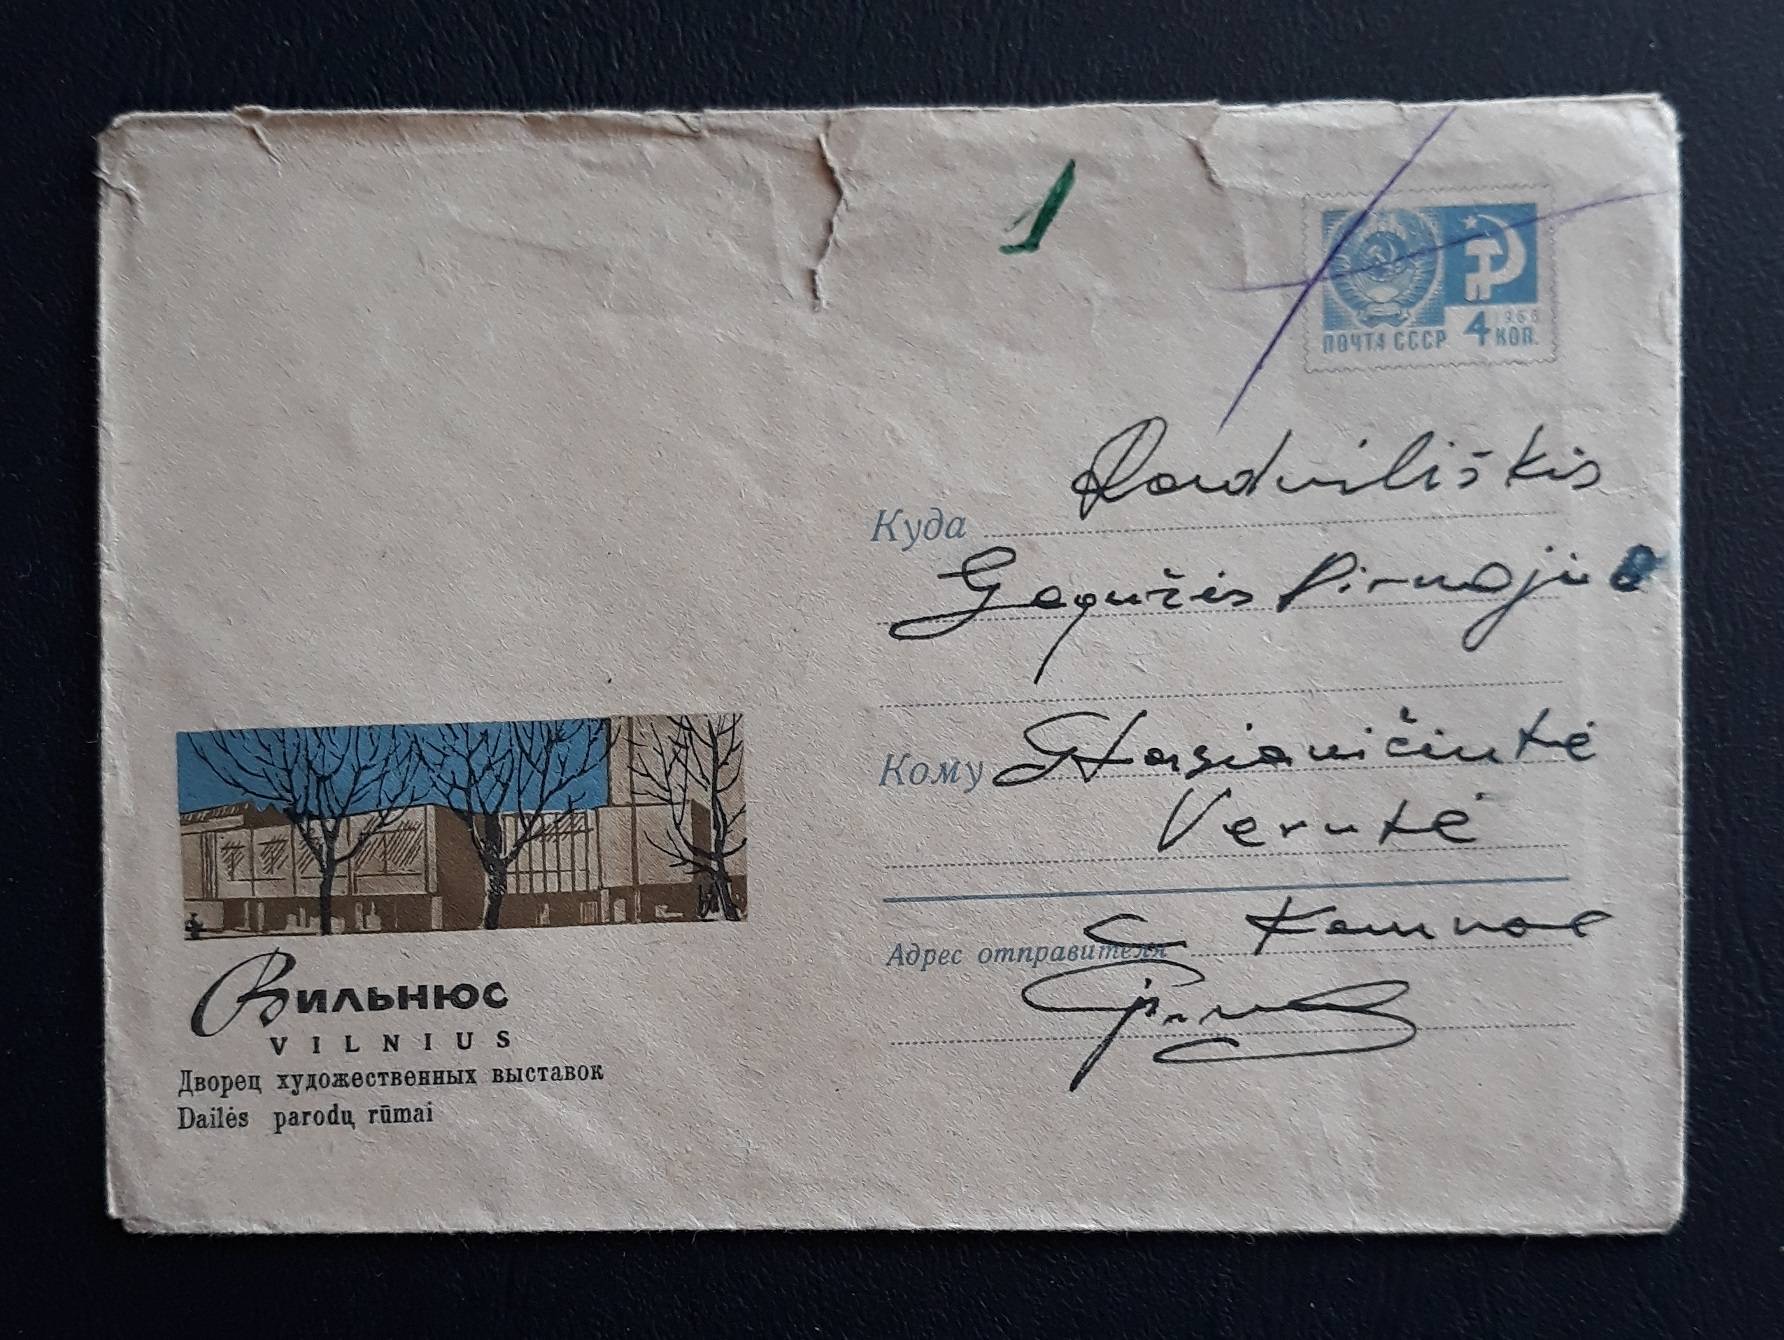 1
ПОЧТА СССР 4 КОП.
1966
Radviliškis
Куда
Gegužės Pirmoji
Кому Stasiavičiutė
Verutė
Адрес отправителя
Вильнюс
VILNIUS
Дворец художественных выставок
Dailės parodų rūmai